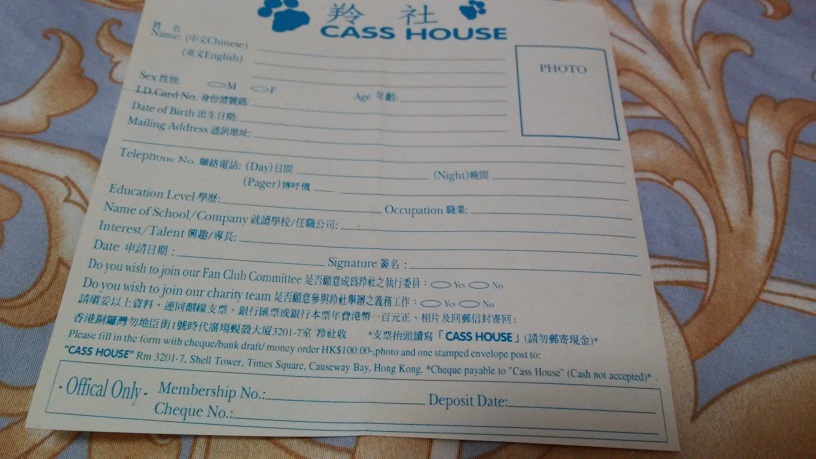 羚社
CASS HOUSE
姓名
Name: (中文Chinese)
(英文English)
PHOTO
Sex 性別: M F
I.D.Card No. 身份證號碼: Age 年齡:
Date of Birth 出生日期:
Mailing Address 通訊地址:
Telephone No. 聯絡電話: (Day)日間 (Night)晚間
(Pager)傳呼機
Education Level 學歷: Occupation 職業:
Name of School/Company 就讀學校/任職公司:
Interest/Talent 興趣/專長:
Date 申請日期: Signature 簽名:
Do you wish to join our Fan Club Committee 是否願意成爲羚社之執行委員: Yes No
Do you wish to join our charity team 是否願意參與羚社舉辦之義務工作: Yes No
請填妥以上資料,連同劃線支票、銀行匯票或銀行本票年費港幣一百元正、相片及回郵信封寄回:
香港銅鑼灣勿地臣街1號時代廣場蜆殼大厦3201-7室 羚社收 *支票抬頭請寫「CASS HOUSE」(請勿郵寄現金)*
Please fill in the form with cheque/bank draft/ money order HK$100.00-,photo and one stamped envelope post to:
"CASS HOUSE" Rm 3201-7, Shell Tower, Times Square, Causeway Bay, Hong Kong. *Cheque payable to "Cass House" (Cash not accepted)*
- Offical Only - Membership No.: Deposit Date:
Cheque No.: